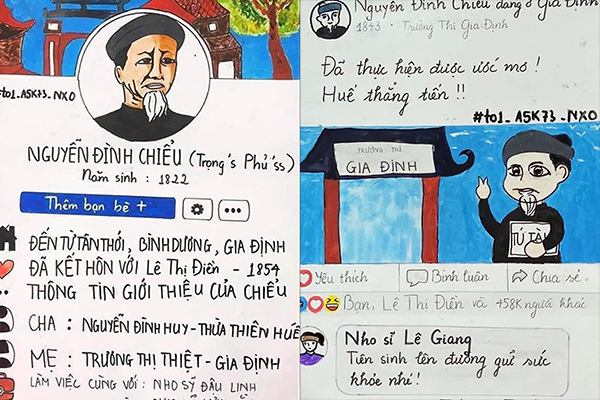 #to1_A5K73_NXO
NGUYỄN ĐÌNH CHIỂU (Trọng's Phủ'ss)
Năm sinh : 1822
Thêm bạn bè +
ĐẾN TỪ TÂN THỚI, BÌNH DƯƠNG, GIA ĐỊNH
ĐÃ KẾT HÔN VỚI Lê Thị Điền - 1854
THÔNG TIN GIỚI THIỆU CỦA CHIỂU
CHA : NGUYỄN ĐÌNH HUY - THỪA THIÊN HUẾ
MẸ : TRƯƠNG THỊ THIỆT - GIA ĐỊNH
LÀM VIỆC CÙNG VỚI : NHO SỸ ĐẬU LINH
Nguyễn Đình Chiểu đang ở Gia Định
1843 · Trường Thi Gia Định
Đã thực hiện được ước mơ !
Huế thẳng tiến !!
#to1_A5K73_NXO
TRƯỜNG THI
GIA ĐỊNH
TÚ TÀI
Yêu thích
Bình luận
Chia sẻ
Bạn, Lê Thị Điền và 458K người khác
Nho sĩ Lê Giang
Tiên sinh lên đường giữ sức
khỏe nhé !